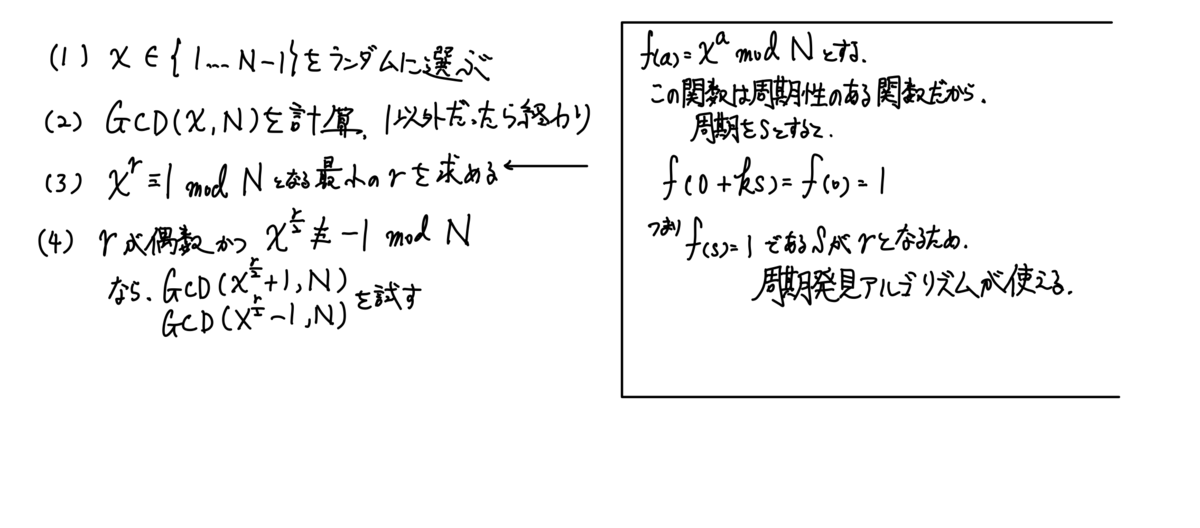 (1) x ∈ { 1... N-1}をランダムに選ぶ
(2) GCD(x, N)を計算、1以外だったら終わり
(3) x^r ≡ 1 mod N となる最小の r を求める ←
(4) r が偶数かつ x^{r/2} ≢ -1 mod N
なら、GCD(x^{r/2}+1, N)
GCD(x^{r/2}-1, N) を試す
f(a) = x^a mod N とする.
この関数は周期性のある関数だから、
周期をSとすると、
f(0+ks) = f(0) = 1
つまり f(s)=1 であるSがrとなるため、
周期発見アルゴリズムが使える.